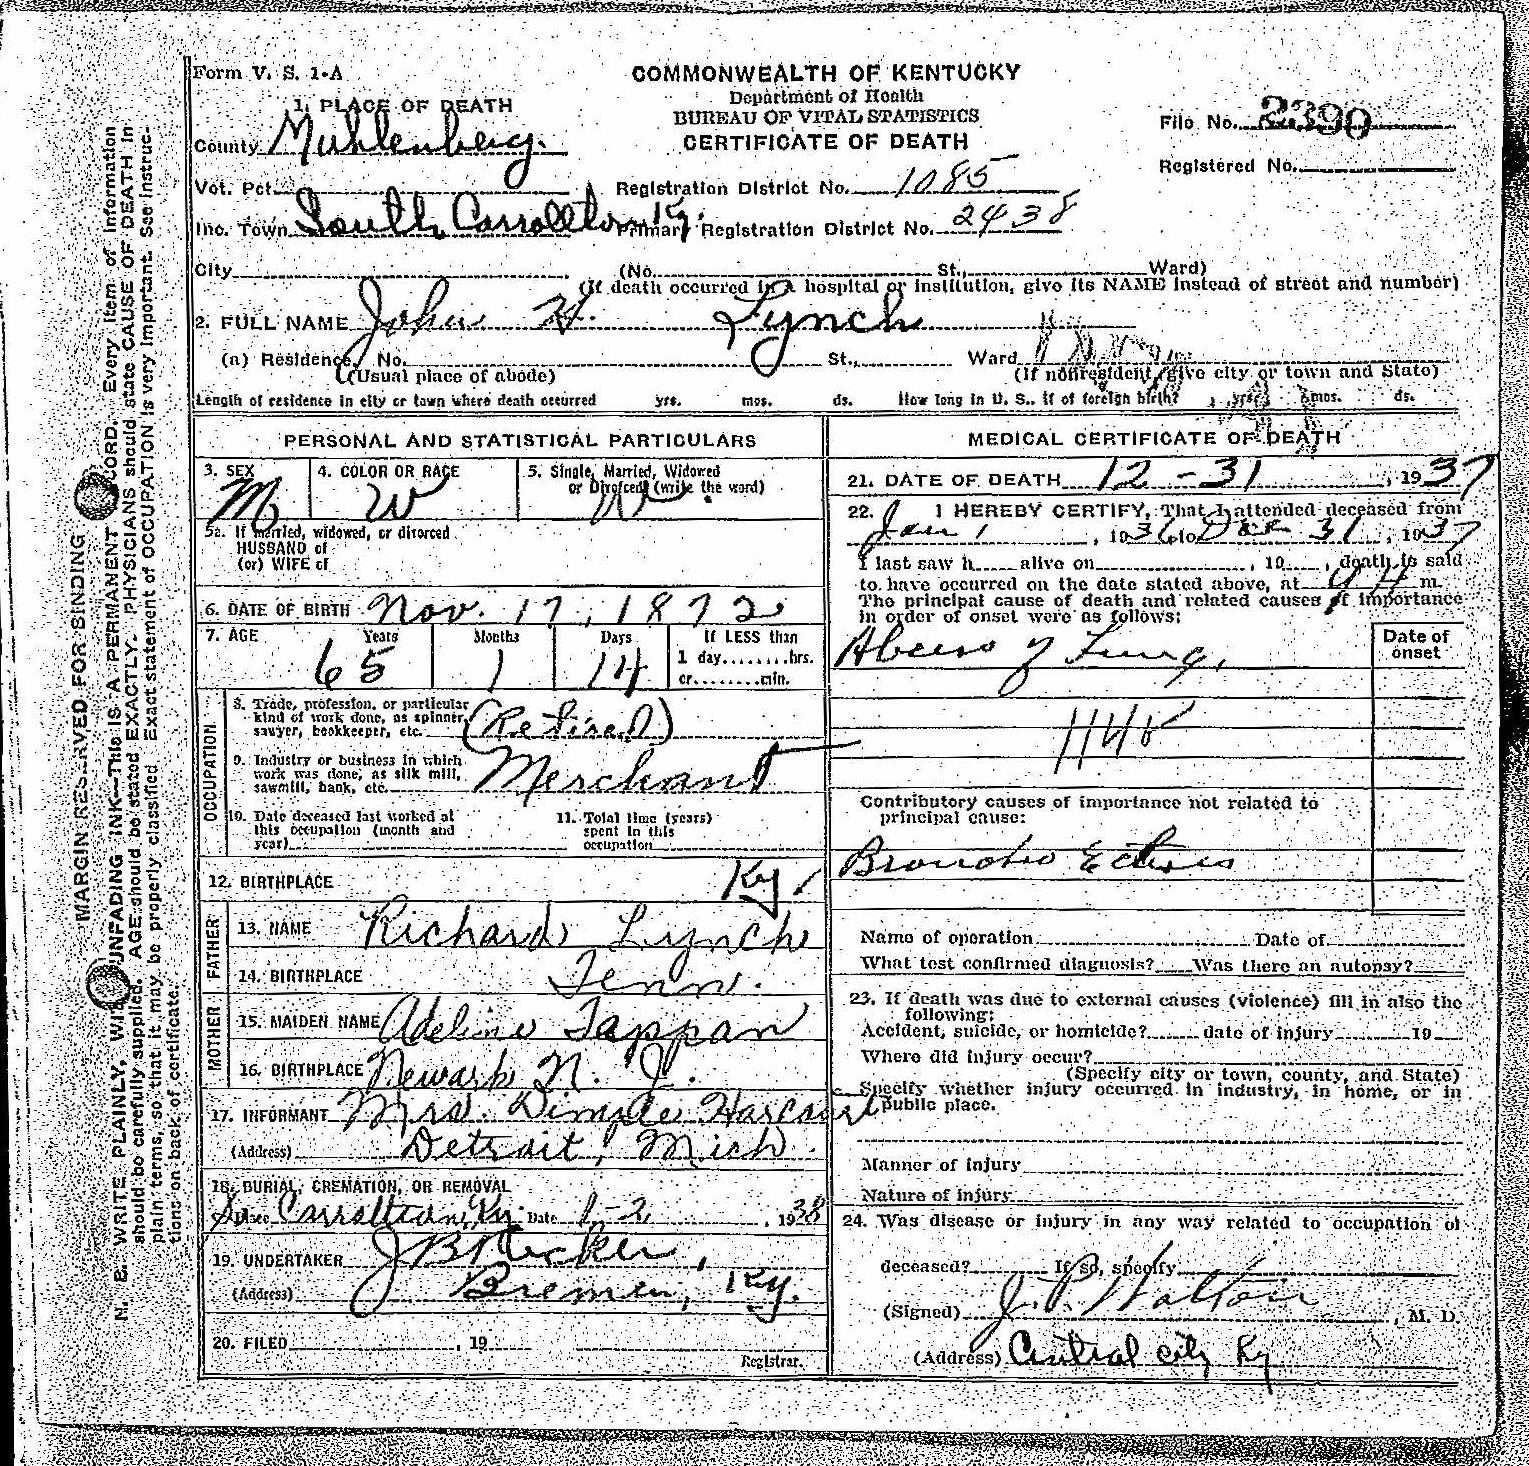 Form V. S. 1-A
COMMONWEALTH OF KENTUCKY
Department of Health
BUREAU OF VITAL STATISTICS
CERTIFICATE OF DEATH
File No. 2390
Registered No.
1. PLACE OF DEATH
County Muhlenberg.
Vot. Pct.
Registration District No. 1085
Inc. Town South Carrollton Ky.
Primary Registration District No. 2438
City (No. St., Ward)
(If death occurred in a hospital or institution, give its NAME instead of street and number)
2. FULL NAME John H. Lynch
(a) Residence, No. St., Ward
(Usual place of abode) (If nonresident, give city or town and State)
Length of residence in city or town where death occurred yrs. mos. ds. How long in U. S., if of foreign birth? yrs. mos. ds.
PERSONAL AND STATISTICAL PARTICULARS
3. SEX M
4. COLOR OR RACE W
5. Single, Married, Widowed
or Divorced (write the word)
W
5a. If married, widowed, or divorced
HUSBAND of
(or) WIFE of
6. DATE OF BIRTH Nov. 17, 1872
7. AGE Years Months Days If LESS than
65 1 14 1 day........hrs.
or........min.
OCCUPATION
8. Trade, profession, or particular
kind of work done, as spinner,
sawyer, bookkeeper, etc. (Retired)
9. Industry or business in which
work was done, as silk mill,
sawmill, bank, etc. Merchant
10. Date deceased last worked at
this occupation (month and
year)
11. Total time (years)
spent in this
occupation
12. BIRTHPLACE Ky.
FATHER
13. NAME Richard Lynch
14. BIRTHPLACE Tenn.
MOTHER
15. MAIDEN NAME Adeline Tappan
16. BIRTHPLACE Newark N. J.
17. INFORMANT Mrs. Dimple Harcourt
(Address) Detroit, Mich.
18. BURIAL, CREMATION, OR REMOVAL
Place So. Carrollton, Ky. Date 1-2, 1938
19. UNDERTAKER J B Tucker,
(Address) Bremen, Ky.
20. FILED , 19
Registrar.
MEDICAL CERTIFICATE OF DEATH
21. DATE OF DEATH 12-31, 1937
22. I HEREBY CERTIFY, That I attended deceased from
Jan 1, 1936 to Dec 31, 1937
I last saw h alive on , 19 , death is said
to have occurred on the date stated above, at 9 A m.
The principal cause of death and related causes of importance
in order of onset were as follows:
Date of
onset
Abcess of Lung,
114b
Contributory causes of importance not related to
principal cause:
Broncho Ectisis
Name of operation Date of
What test confirmed diagnosis? Was there an autopsy?
23. If death was due to external causes (violence) fill in also the
following:
Accident, suicide, or homicide? date of injury 19
Where did injury occur?
(Specify city or town, county, and State)
Specify whether injury occurred in industry, in home, or in
public place.
Manner of injury
Nature of injury
24. Was disease or injury in any way related to occupation of
deceased? If so, specify
(Signed) J. P. Walton, M. D.
(Address) Central City Ky
MARGIN RESERVED FOR BINDING
N. B. WRITE PLAINLY, WITH UNFADING INK—THIS IS A PERMANENT RECORD. Every item of information
should be carefully supplied. AGE should be stated EXACTLY. PHYSICIANS should state CAUSE OF DEATH in
plain terms, so that it may be properly classified. Exact statement of OCCUPATION is very important. See instruc-
tions on back of certificate.